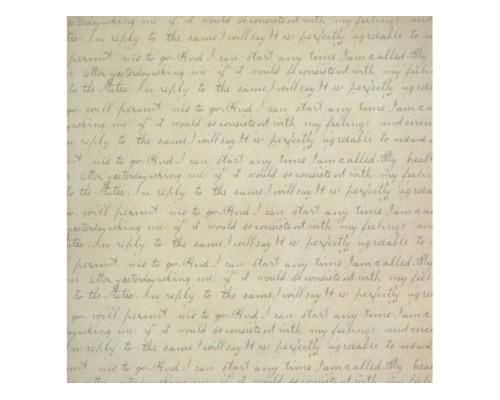 yesterday asking me if it would be consistent with my feelings and
tes. In reply to the same I will say It is perfectly agreeable to m
permit me to go. And I can start any time I am called. My
letter yesterday asking me if it would be consistent with my feelin
to the States. In reply to the same I will say It is perfectly agreea
go. will permit me to go. And I can start any time I am ca
asking me if it would be consistent with my feelings and circu
n reply to the same I will say It is perfectly agreeable to me and
it me to go. And I can start any time I am called. My heal
letter yesterday asking me if it would be consistent with my feel
to the States. In reply to the same I will say It is perfectly agreea
go. will permit me to go. And I can start any time I am ca
yesterday asking me if it would be consistent with my feelings an
tes. In reply to the same I will say It is perfectly agreeable to
permit me to go. And I can start any time I am called. My
yesterday asking me if it would be consistent with my feel
to the States. In reply to the same I will say It is perfectly agree
go. will permit me to go. And I can start any time I am c
asking me if it would be consistent with my feelings and circu
In reply to the same I will say It is perfectly agreeable to me and
permit me to go. And I can start any time I am called. My heal
letter yesterday asking me if it would be consistent with my feel